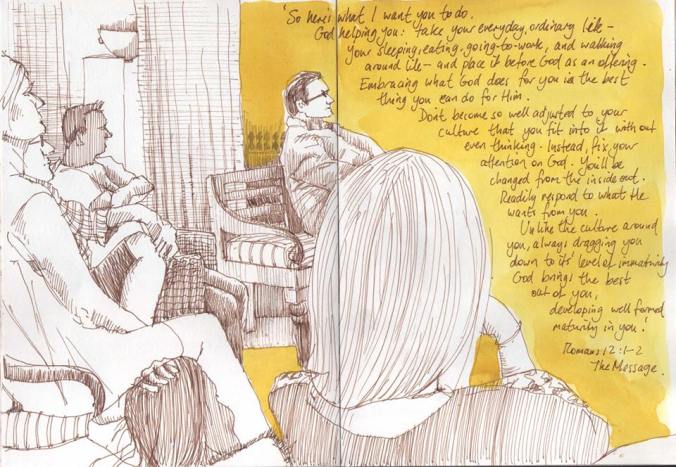 'So here's what I want you to do.
God helping you: take your everyday, ordinary life –
your sleeping, eating, going-to-work, and walking
around life – and place it before God as an offering.
Embracing what God does for you is the best
thing you can do for Him.
Don't become so well adjusted to your
culture that you fit into it without
even thinking. Instead, fix your
attention on God. You'll be
changed from the inside out.
Readily respond to what He
wants from you.
Unlike the culture around
you, always dragging you
down to its' level of immaturity
God brings the best
out of you,
developing well formed
maturity in you.'
Romans 12:1-2
The Message.